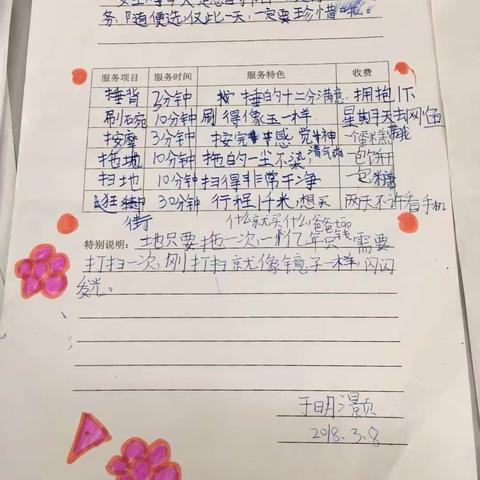 务,随便选,仅此一天,一定要珍惜哦。
服务项目 服务时间 服务特色 收费
捶背 7分钟 按捶的十二分满意 拥抱1下
刷碗 10分钟 刷得像玉一样 星期天去网
按摩 3分钟 按完 感觉神 一个蛋糕
拖地 10分钟 拖的一尘不染 清气 包饼干
扫地 10分钟 扫得非常干净 一包糖
逛街 30分钟 行程1千米,想买什么就买什么,爸爸 两天不许看手机
特别说明:土地只要拖一次,一亿年只需要
打扫一次,刚打扫就像镜子一样,闪闪
发光。
于明灏
2018.3.8